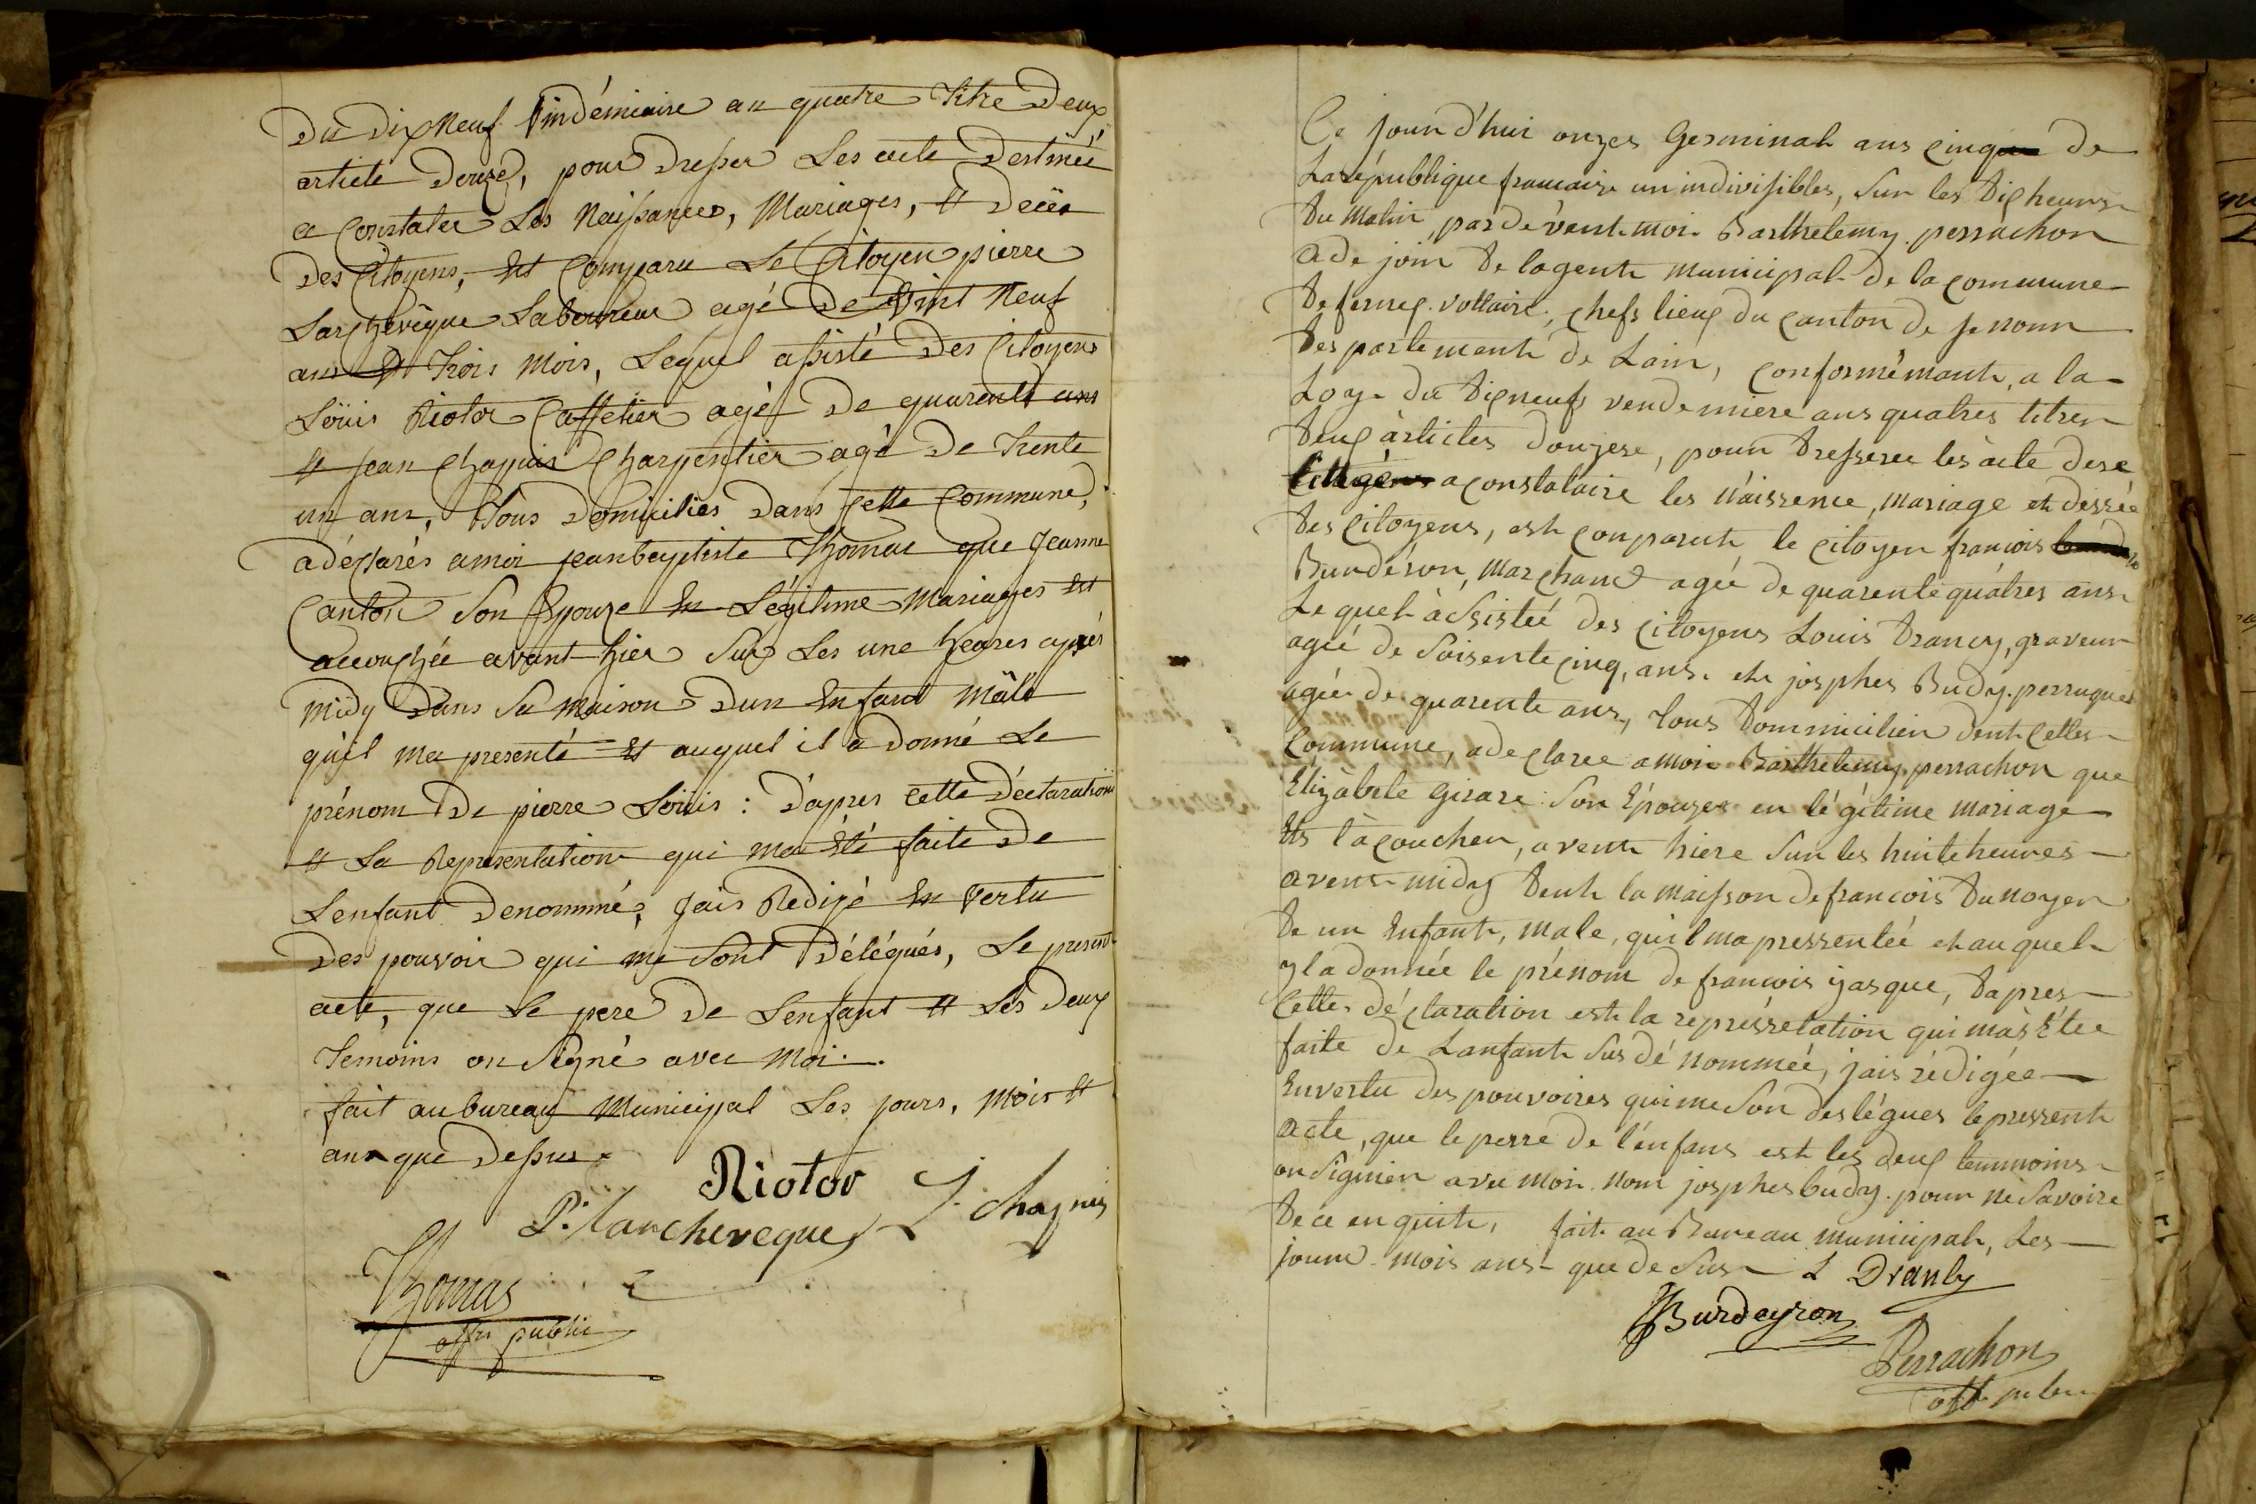 Du Dixneuf Vindémiaire an quatre titre Deux
article Douze, pour Dresser Les acte Destinée
a Constater Les Naissances, Mariages, et Decès
Des Citoyens, Est Comparu Le Citoyen pierre
Larchevêque Laboureur agé De Vint Neuf
ans Et Trois Mois, Lequel assisté Des Citoyens
Loüis Riotor Caffetier agé De quarente ans
et Jean Chapuis Charpentier agé De Trente
un ans, Tous Domiciliés Dans Cette Commune,
a déclarés amoi jeanbaptiste Thomas que Jeanne
Canton Son Epouze En Légitime Mariages Est
accouchée avant hier Sur Les une heures après
midy Dans Sa Maison Dun Enfant Mâle
quil ma presenté Et auquel il a Donné Le
prénom De pierre Loüis : Dapres Cette Déclaration
et La Representation qui ma Eté faite De
Lenfant Denommé, Jais Redigé En Vertu
Des pouvoir qui me Sont Délégués, Le present
acte, que Le pere De Lenfant et Les Deux
Temoins on Signé avec Moi.
fait au bureau Municipal Les jours, Mois et
ans que Dessus.
Riotor
P. Larcheveque J. chapuis
Thomas
offr public
Ce jourd'hui onzes Germinal ans cinq de
La république francaize un indivisibles, Sur les dix heures
du Matin, pardevent moi Barthélemy perrachon
adejoin de lagente municipal de la commune
de fernex voltaire, chefs lieux du canton de je nom
despartemente de Lain, conformémante, a la
Loy du dixneufs vendemiere ans quatres titre
deux àrticles douzese, pour dresserer les àcte dese
a constataire les naissence, mariage et dessée
des citoyens, est conparute le citoyen francois
Burdéron, Marchand agée de quarente quátres ans
Lequel àssistée des citoyens Louis Drancy, graveur
agée de soisente cinq, ans. et josphes Budy. perruquier
agée de quarente ans, tous dommicilien dent celles
commune, adeclaree amoi Barthelemy perrachon que
Elizàbete Girare Son Epouzes en légitime mariage
Ets l'àcoucher, avent hiere Sur les huite heures
avent midy dent la maisson de francois Dunoyer
de un Enfant, Male, quil ma pressentée et au quel
yl a donnée le prénom de francois yasque, dapres
celles déclaration est la repressetation qui màs Etee
faite de Lanfant Susdénommée, jais rédigée
Envertu des pouvoires qui me Son deslégues le pressent
acte, que le perre de l'énfans est les deux temmoins
on Signien avec moi nom josphes budy. pour ne Savoire
de ce enquite, fait au Bureau municipal, Les
jours mois ans que de Sus L Dranly
Burdeyron
Perrachon